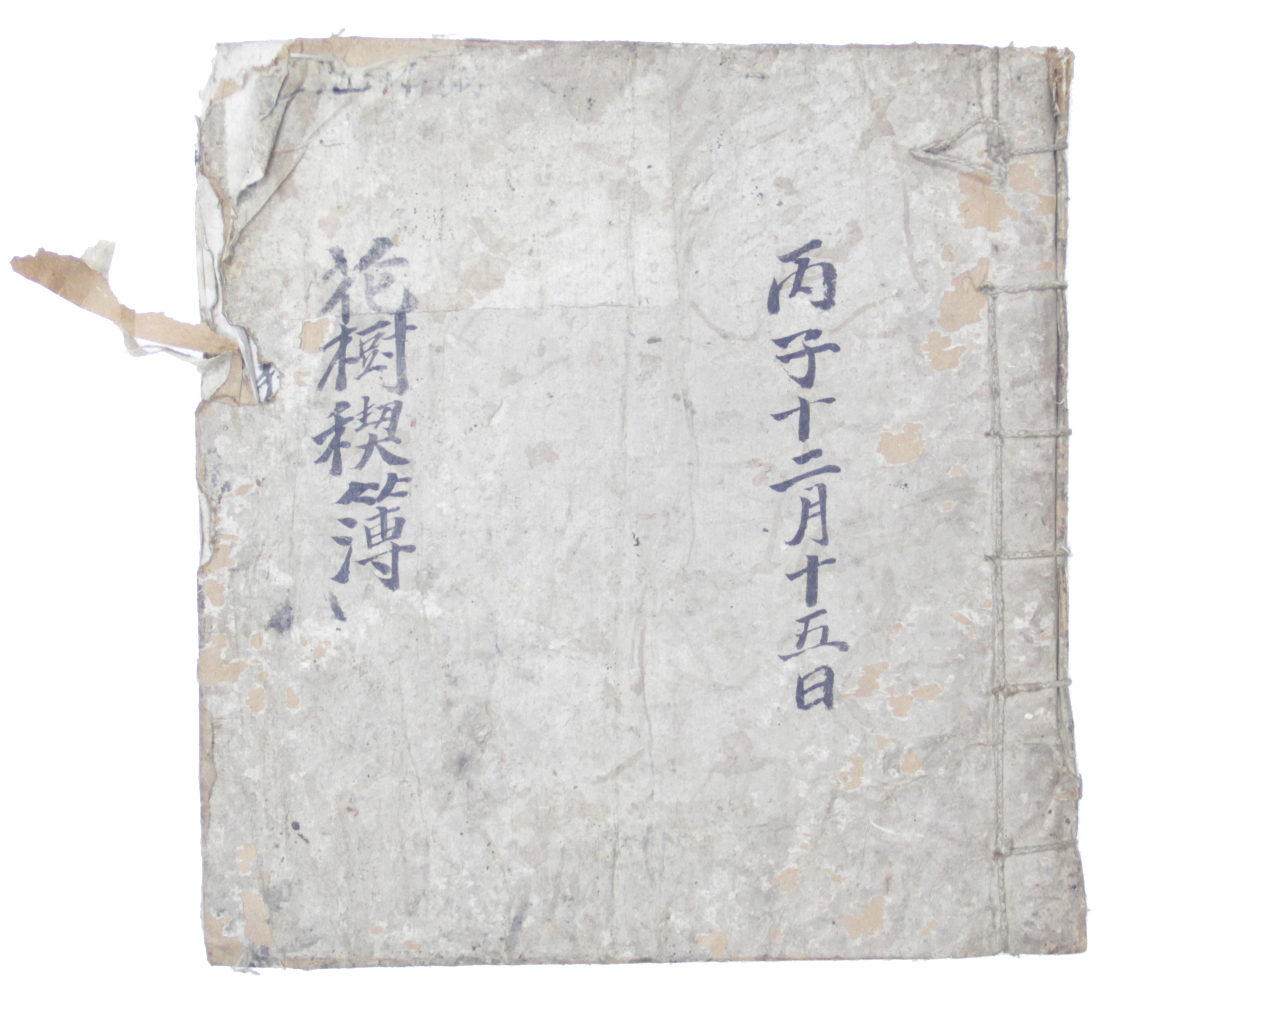 丙子十二月十五日
花樹稧簿